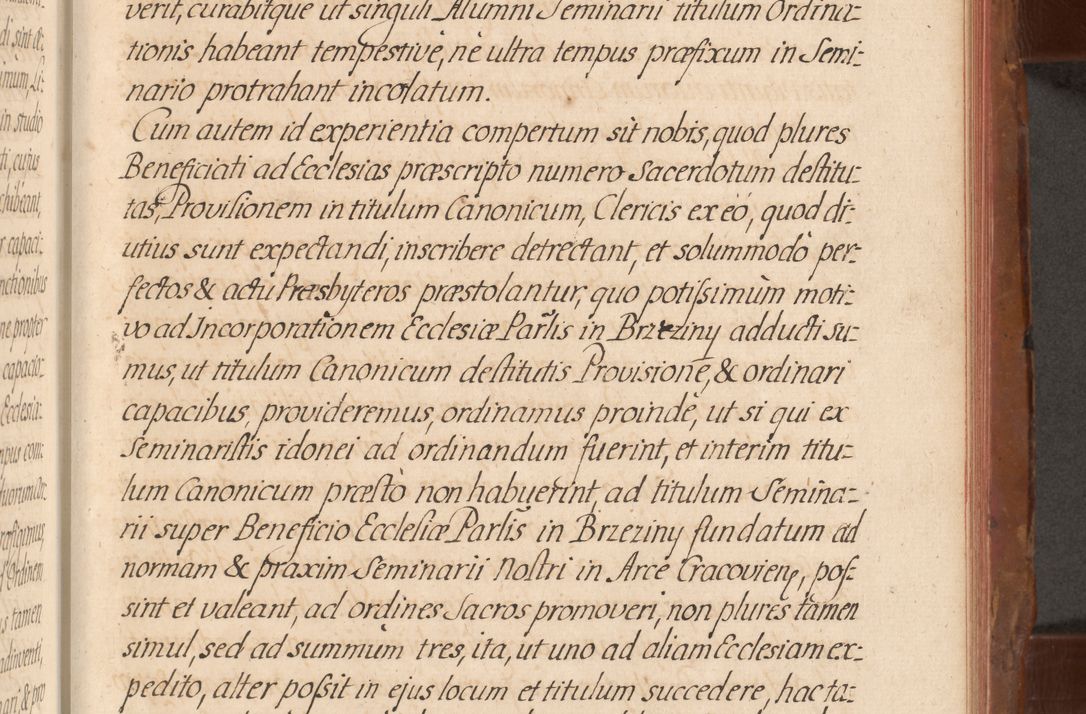 verit, curabitque ut singuli Alumni Seminarii titulum Ordina=
tionis habeant tempestivè, nè ultra tempus præfixum in Semi=
nario protrahant incolatum.
Cum autem id experientia compertum sit nobis, quod plures
Beneficiati ad Ecclesias præscripto numero Sacerdotum destitu=
tas, Provisionem in titulum Canonicum, Clericis ex eó, quod di=
utius sunt expectandi, inscribere detrectant, et solummodò per=
fectos & actû Præsbyteros præstolantur, quo potissimùm moti=
vo ad Incorporationem Ecclesiæ Parlis in Brzeziny adducti su=
mus, ut titulum Canonicum destitutis Provisione, & ordinari
capacibus, provideremus, ordinamus proindè, ut si qui ex
Seminaristis idonei ad ordinandum fuerint, et interim titu=
lum Canonicum præstò non habuerint, ad titulum Semina=
rii super Beneficio Ecclesiæ Parlis in Brzeziny fundatum ad
normam & praxim Seminarii Nostri in Arce Cracovien, pos=
sint et valeant, ad ordines Sacros promoveri, non plures tamen
simul, sed ad summum tres, ita, ut uno ad aliam Ecclesiam ex=
pedito, alter possit in ejus locum et titulum succedere, hac ta=
di sint
in studio
cujus
chibeant,
capaci=
nctionibus
ne propter
capacio=
Ecclesia=
mpus com=
Ordinem
tamen
adinventi,
& pro